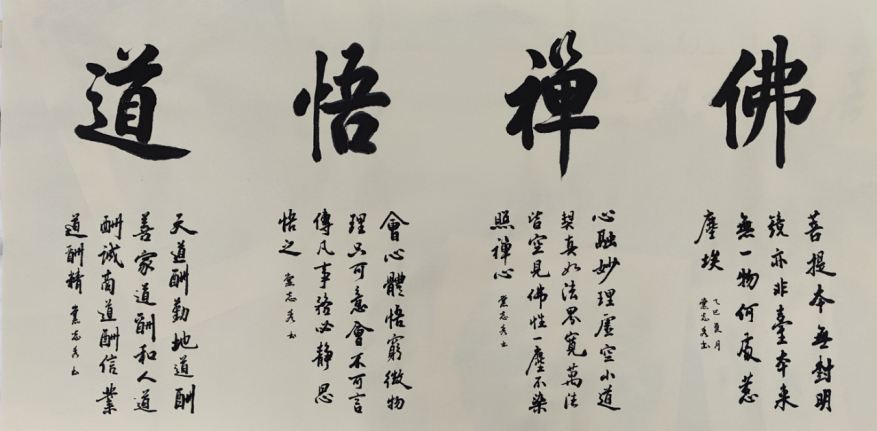 佛
菩提本無對明
鏡亦非臺本來
無一物何處惹
塵埃
乙巳夏月
禪
心融妙理虛空小道
契真如法界寬萬法
皆空見佛性一塵不染
照禪心
悟
會心體悟窮微物
理只可意會不可言
傳凡事務必靜思
悟之
道
天道酬勤地道酬
善家道酬和人道
酬誠商道酬信業
道酬精